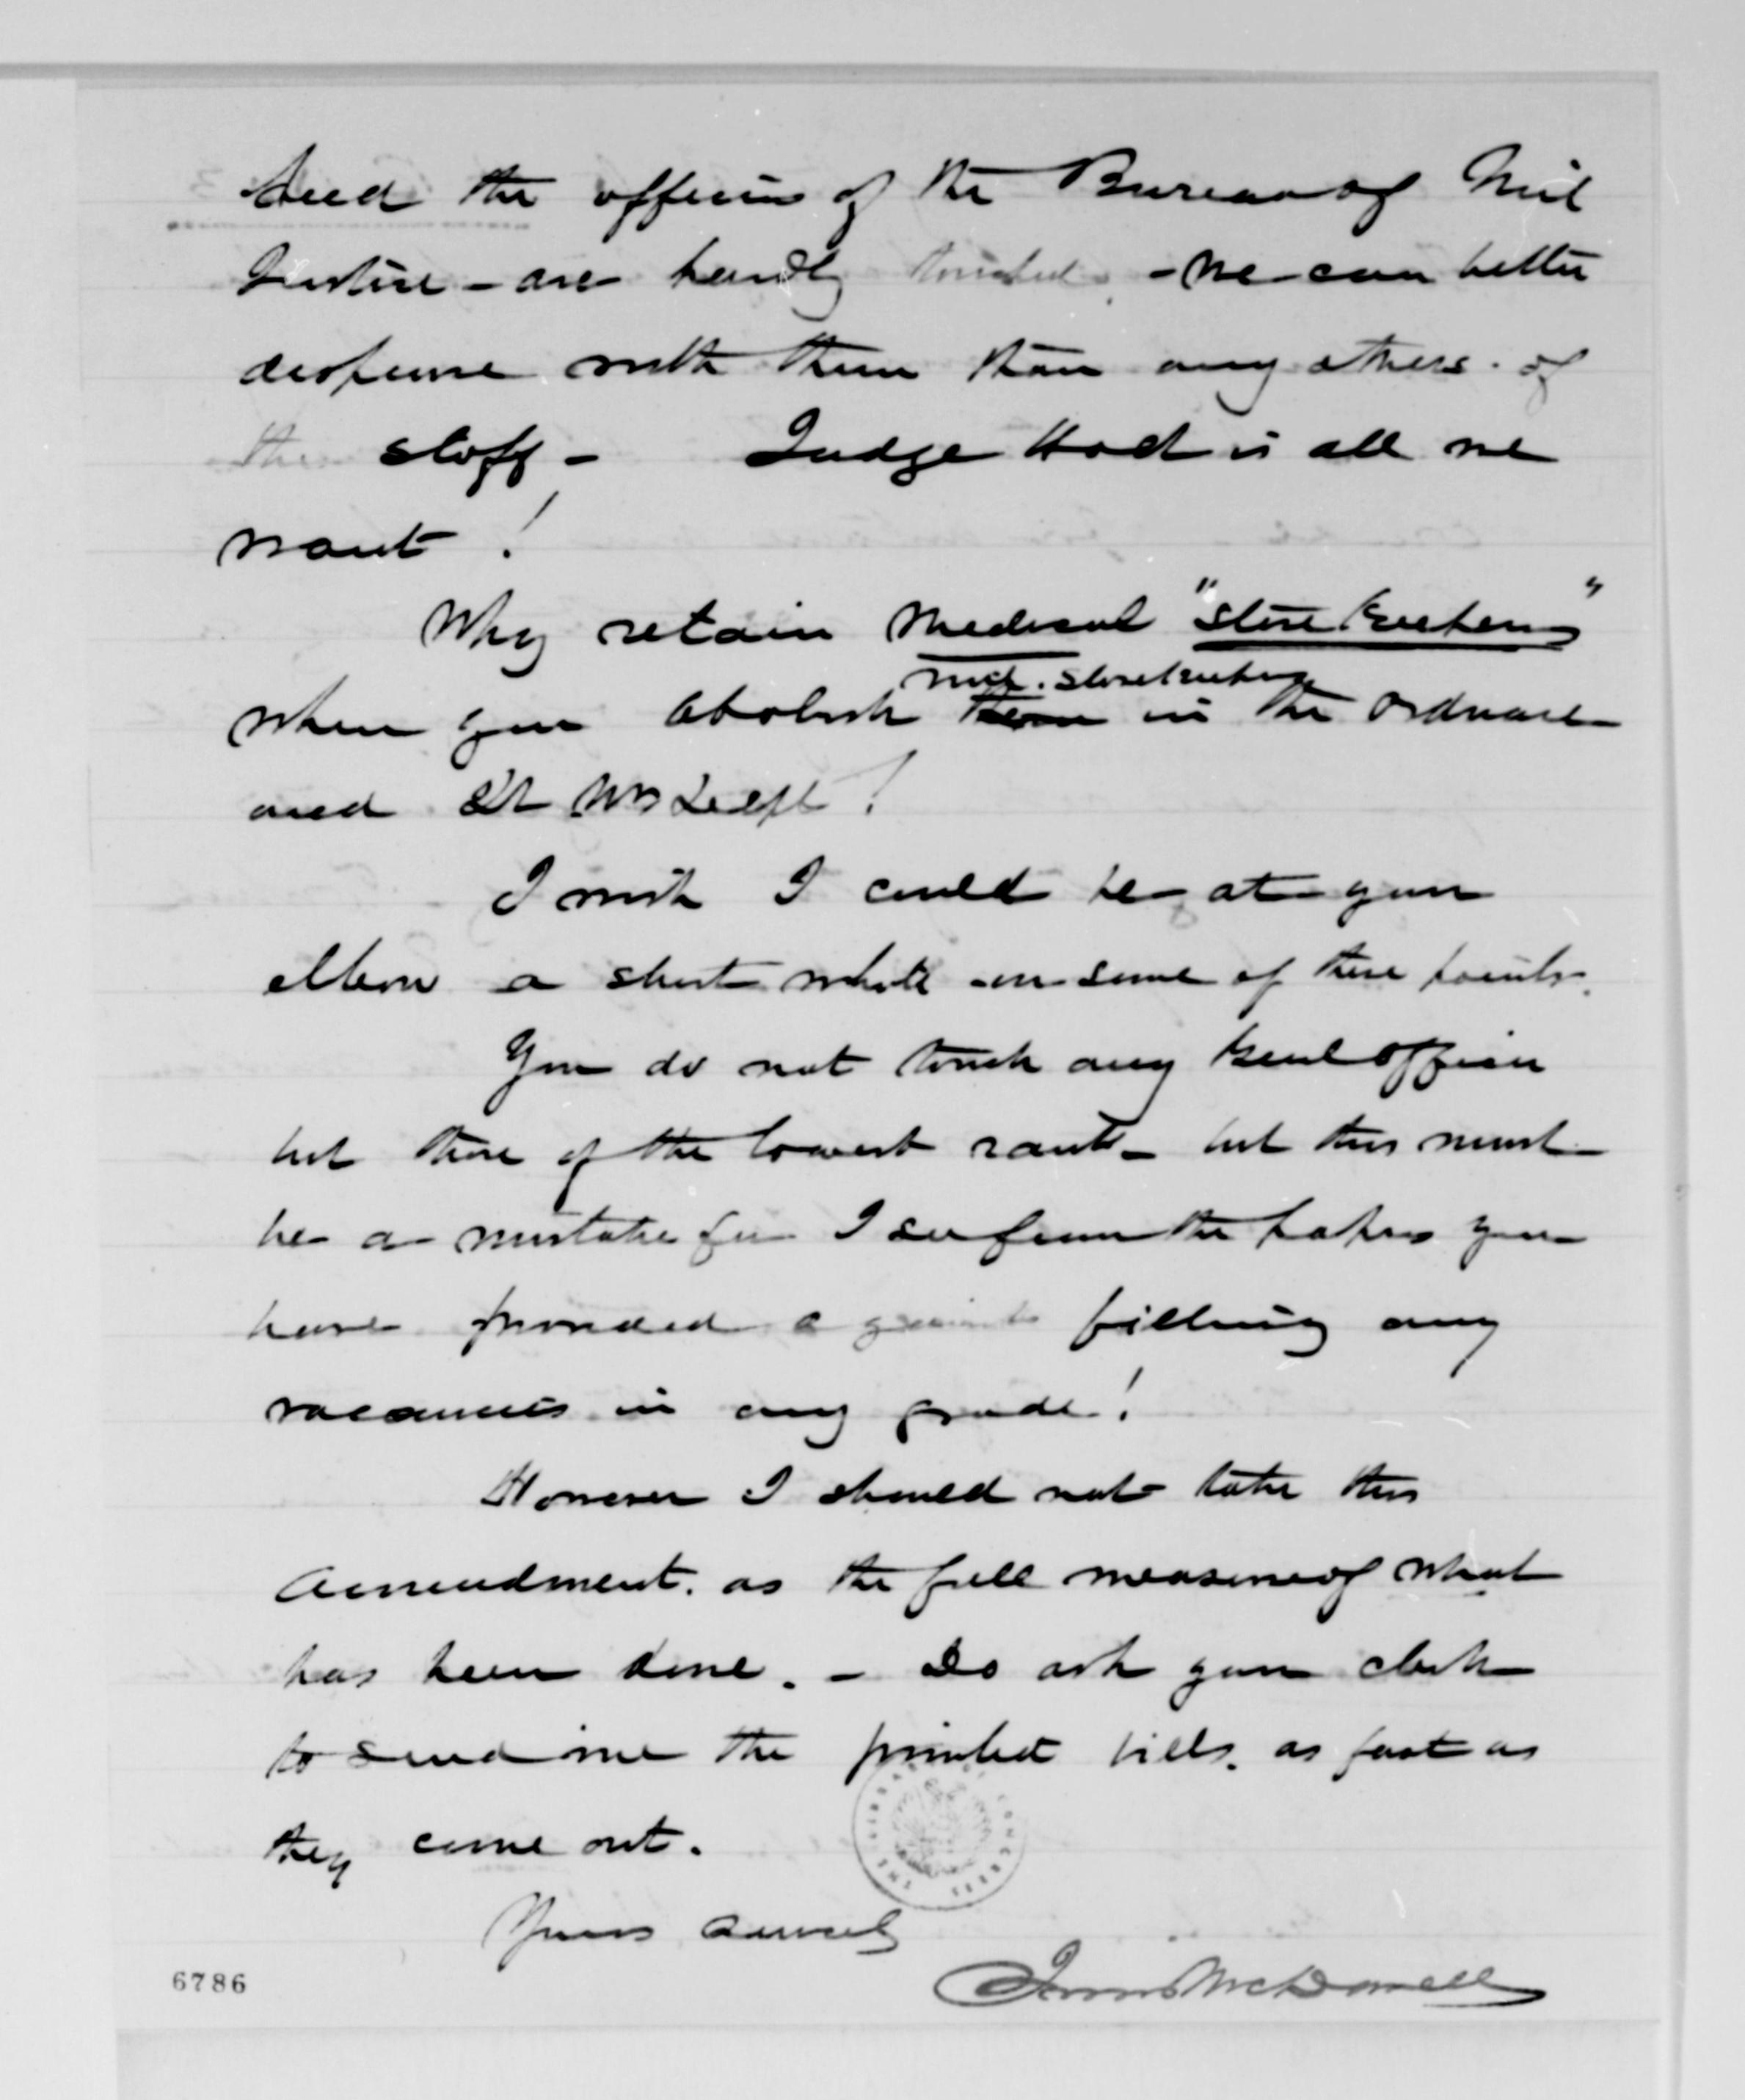 the officers of the Bureau of Mil
Justice - are hardly touched, - We can better
dispense with them than any others of
the staff - Judge Holt is all we
want!
Why retain Medical "Store Keepers"
med. storekeepers
when you abolish in the Ordnance
and Qr Mr Dept!
I wish I could be at your
elbow a short while on some of these points.
You do not touch any Genl officer
but those of the lowest rank - but this must
be a mistake for I see from the papers you
have provided against filling any
vacancies in any grade!
However I should not take this
Amendment. as the full measure of what
has been done. - Do ask your clerk
to send me the printed bills. as fast as
they come out.
Yours sincerely
Irvin McDowell
THE LIBRARY OF CONGRESS
6786